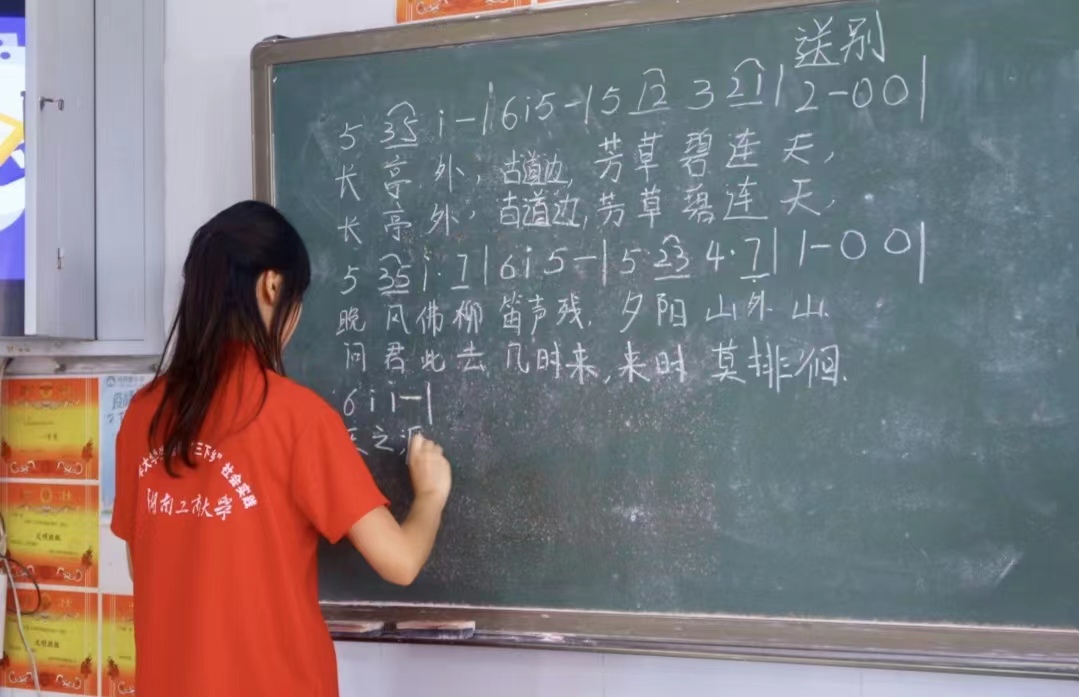 送别
5 35 i - | 6 i 5 - | 5 12 3 21 | 2 - 0 0 |
长亭外，古道边，芳草碧连天，
长亭外，古道边，芳草碧连天，
5 35 i· 7 | 6 i 5 - | 5· 23 4· 7 | 1 - 0 0 |
晚风佛柳笛声残，夕阳山外山.
问君此去几时来，来时莫排徊.
6 i i - |
天之涯
大学 "三下乡"社会实践
湖南工商大学